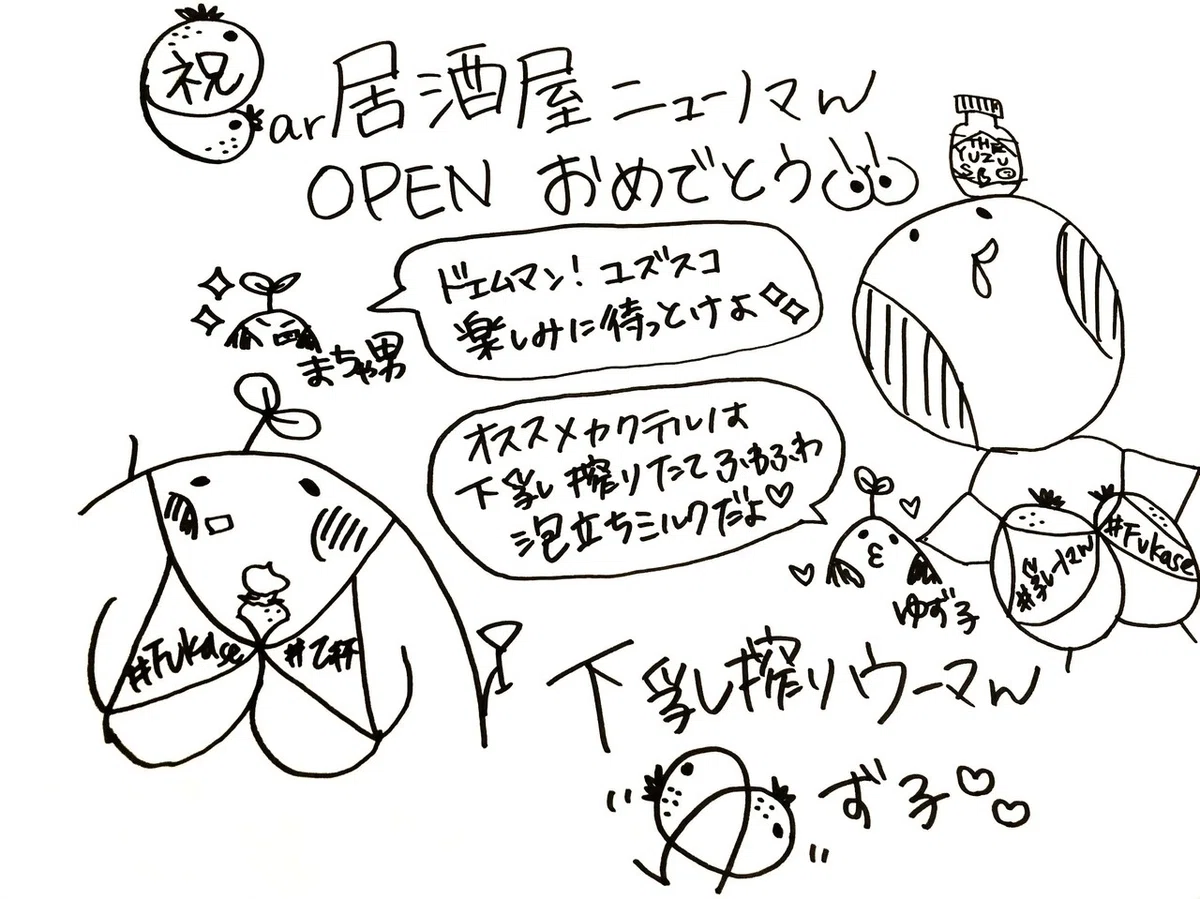 祝
Bar居酒屋ニューノマん
OPEN おめでとう
THE
YUZU
SB
ドエムマン！ユズスコ
楽しみに待っとけよ
まちゃ男
オススメカクテルは
下乳搾りたてふわふわ
泡立ちミルクだよ♡
ゆず子
#乳ーマん
#Fukase
#Fukase
#乙杯
下乳搾りウーマん
ゆず子♡♡